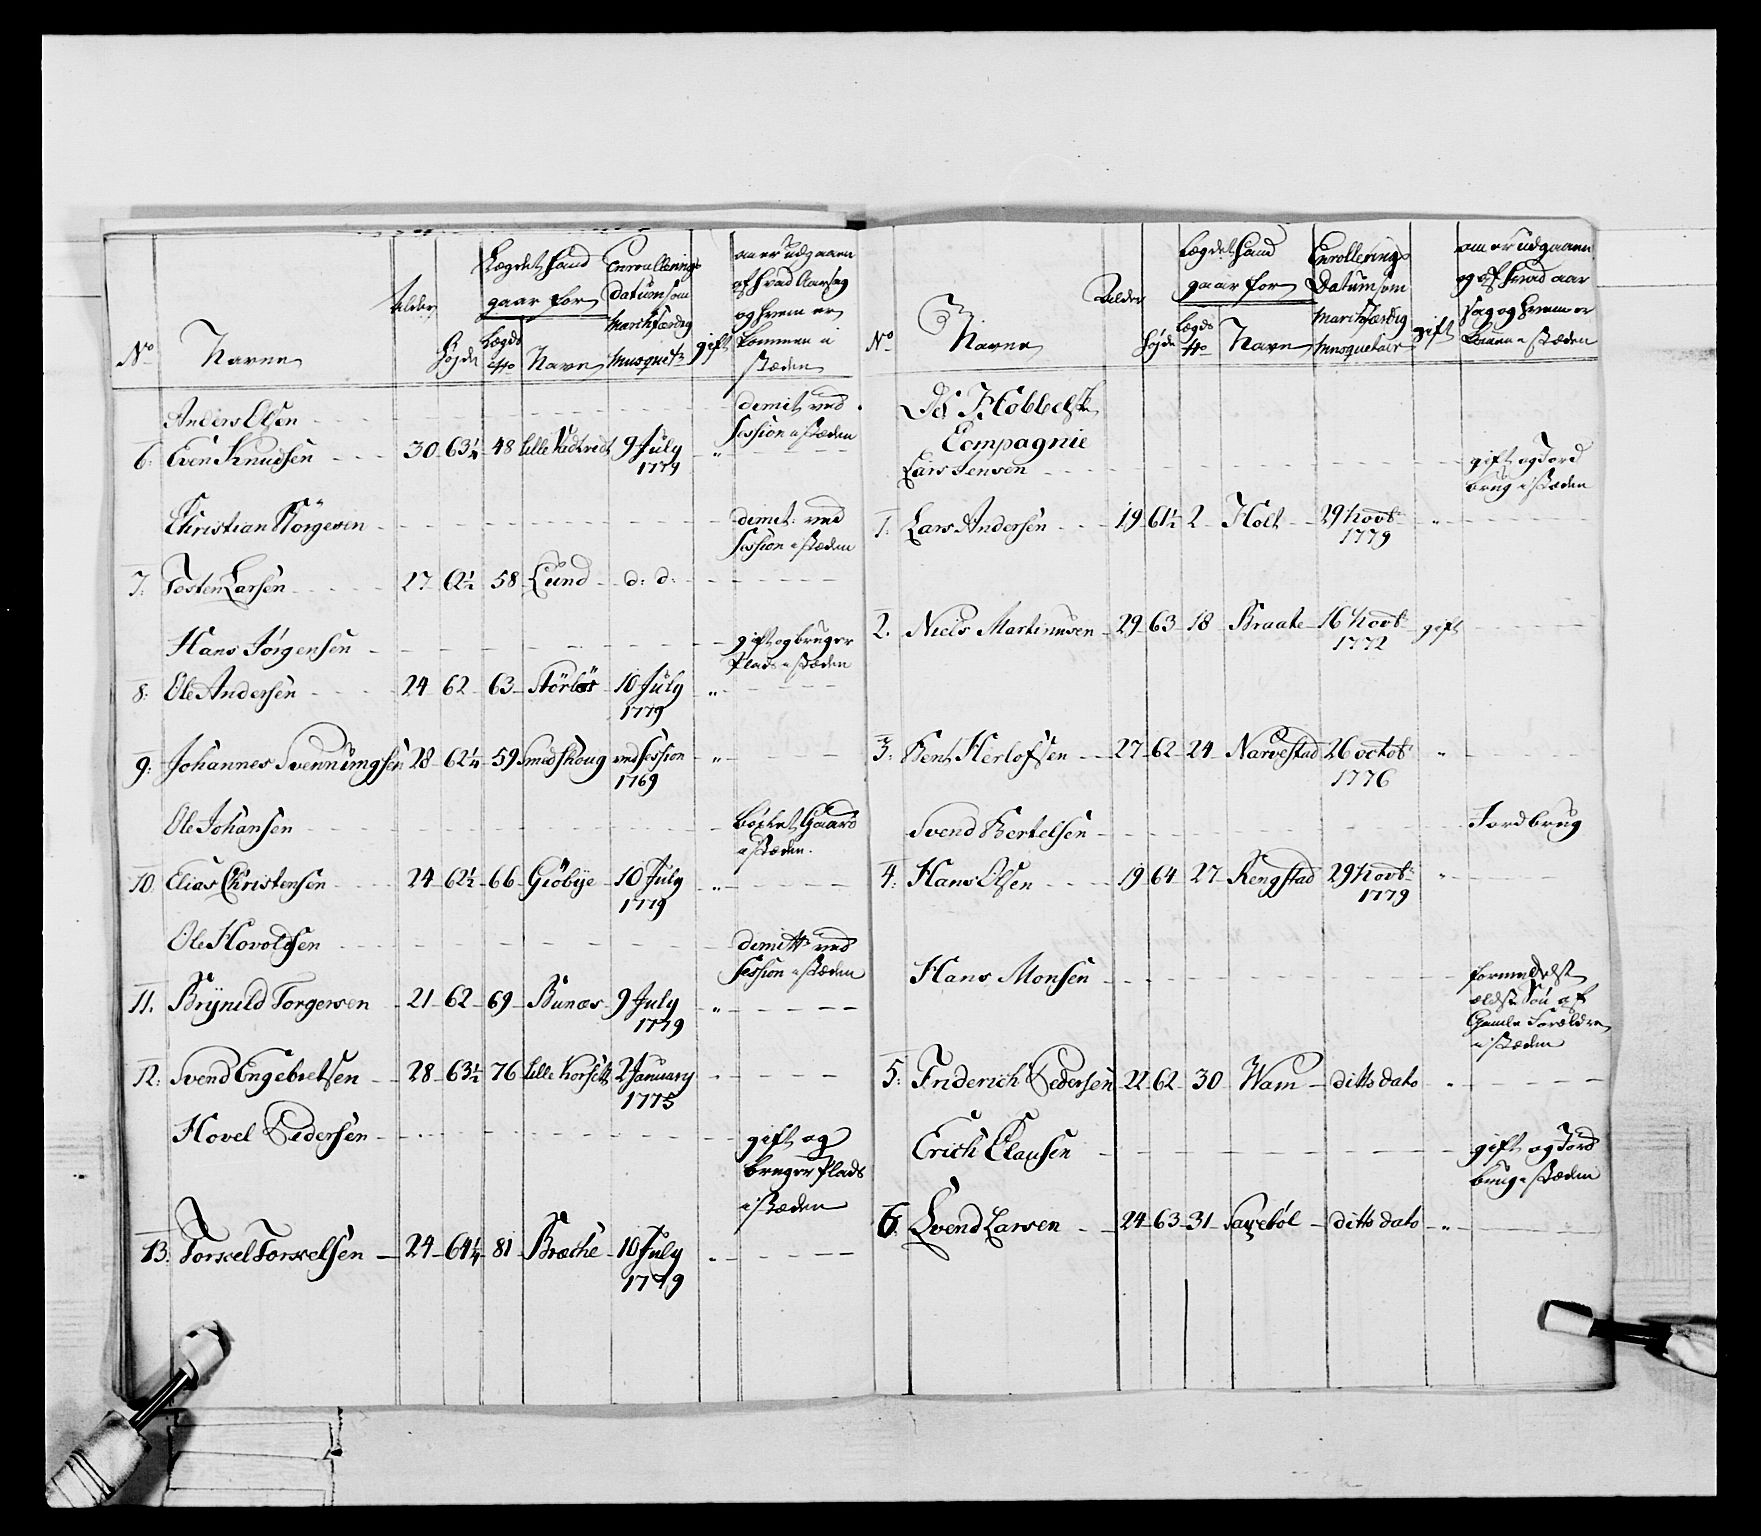 No Navne Alder Højde Lægdet hand gaar for Lægds No Navn Enroullerings Datum som Marchfærdig Musquet: gift
om er udgaaen
af hvad Aarsag
og hvem er
kommen i
stæden
Anders Olsen - - - demit: ved
Session i stæden
6: Even Knudsen - - 30 - 63¼ - 48 lille 9 July
1779 "
Christian Börgesen - - - demit: ved
Session i stæden
7: Tosten Larsen - - 17 - 62½ 58 - Lund - d: d: - -
Hans Jörgensen - - - gift og bruger
Plads i stæden
8: Ole Andersen - - 24 - 62 - 63 - Störlös - 10 July
1779 "
9: Johannes Svennungsen 28 - 62¼ - 59 Smedskoug ved Session
1769 "
Ole Johansen - - - böxlet Gaard
i stæden.
10: Elias Christensen - - 24 - 62½ - 66 - Giöbye - 10 July
1779 "
Ole Hovoldsen - - - demitt: ved
Session i stæden
11. Brÿnild Torgersen - 21 - 62 - 69 - Bunæs - 9 July
1779 "
12: Svend Engebretsen - 28 - 63½ - 76 lille Korseth 2 January
1775
Hovel Pedersen - - - gift og
bruger Plads
i stæden
13: Torkel Torkelsen - 24 - 64¼ - 81 - Bræche - 10 July
1779 "
No Navne Alder Højde Lægdet hand gaar for Lægds No Navn Enrollerings Datum som Marchfærdig Musquetair gift
om er udgaaen
og af hvad aar
sag og hvem er
kommen i stæden
Hobbelst:
Compagnie
Lars Jensen - - - gift og Jord
brug i stæden
1. Lars Andersen - - 19 - 61½ 2 - Holt - 29 Novb:
1779 "
2. Niels Martinusen - 29 - 63 - 18 - Braate - 16 Novb:
1772 gift
3: Bent Herlofsen - 27 - 62 - 24 - Narvestad 26 octob:
1776 "
Svend Bertelsen - - - Jordbrug
4: Hans Olsen - - 19 - 64 - 27 - Rengstad 29 Novb:
1779 "
Hans Monsen - - - formedelst
ældste Sön af
Gamle Forældre
i stæden
5: Friderich Pedersen 22 - 62 - 30 - Wam - ditto dato "
Erich Clausen - - - gift og Jord
brug i stæden
6: Svend Larsen - - 24 - 63 - 31 - ditto dato - "